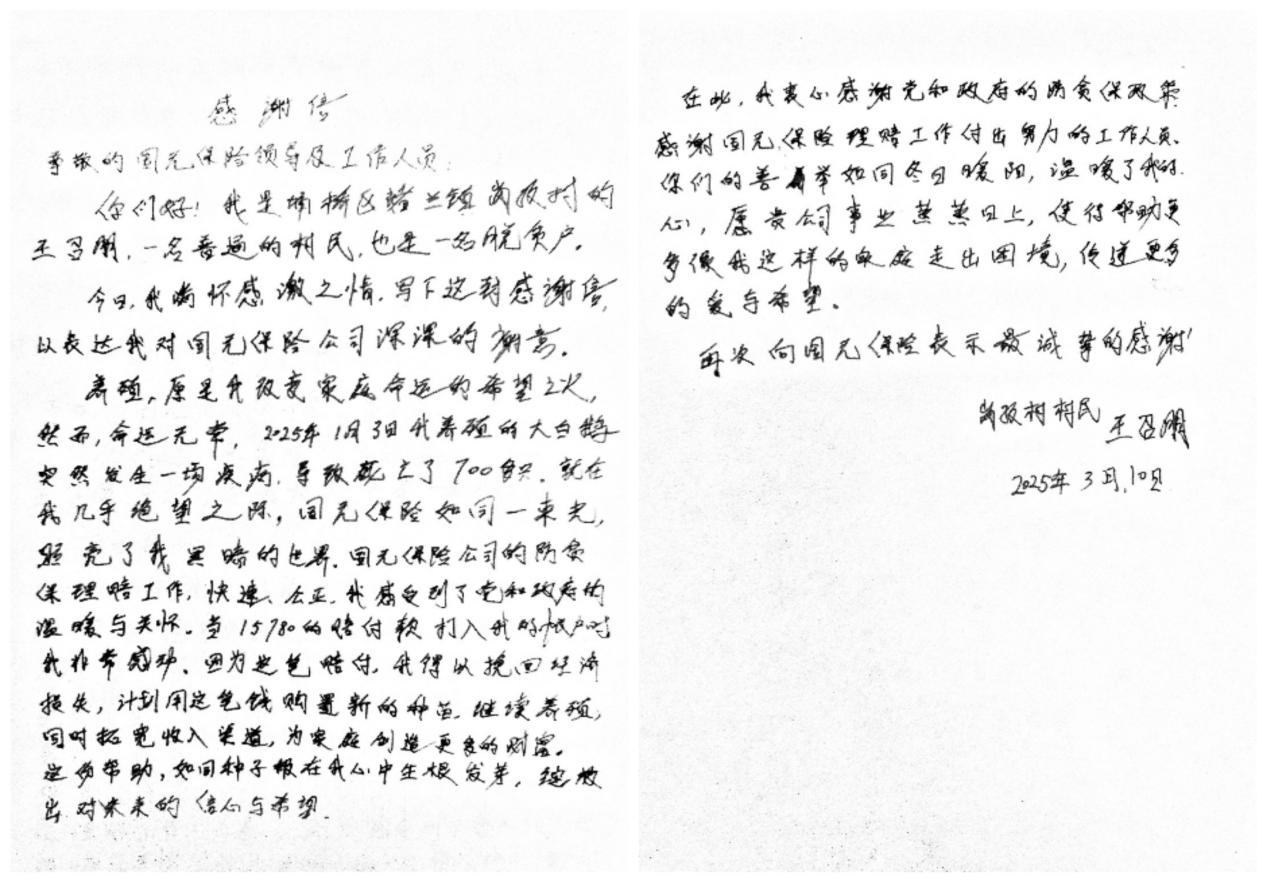 感谢信
尊敬的国元保险领导及工作人员:
你们好!我是埇桥区褚兰镇岗孜村的
王召朋,一名普通的村民,也是一名脱贫户。
今日,我满怀感激之情,写下这封感谢信,
以表达我对国元保险公司深深的谢意。
养殖,原是我改变家庭命运的希望之火,
然而,命运无常,2025年1月3日我养殖的大白鹅
突然发生一场疾病,导致死亡了700多只,就在
我几乎绝望之际,国元保险如同一束光,
照亮了我黑暗的世界。国元保险公司的防贫
保理赔工作,快速、公正,我感受到了党和政府的
温暖与关怀。当15780的赔付款打入我的帐户时
我非常感动。因为这笔赔付,我得以挽回经济
损失,计划用这笔钱购置新的种苗,继续养殖,
同时拓宽收入渠道,为家庭创造更多的财富。
这份帮助,如同种子般在我心中生根发芽,绽放
出对未来的信心与希望.
在此,我衷心感谢党和政府的防贫保政策
感谢国元保险理赔工作付出努力的工作人员、
你们的善举如同冬日暖阳,温暖了我的
心,愿贵公司事业蒸蒸日上,使得帮助更
多像我这样的家庭走出困境,传递更多
的爱与希望。
再次向国元保险表示最诚挚的感谢!
岗孜村村民 王召朋
2025年3月10日